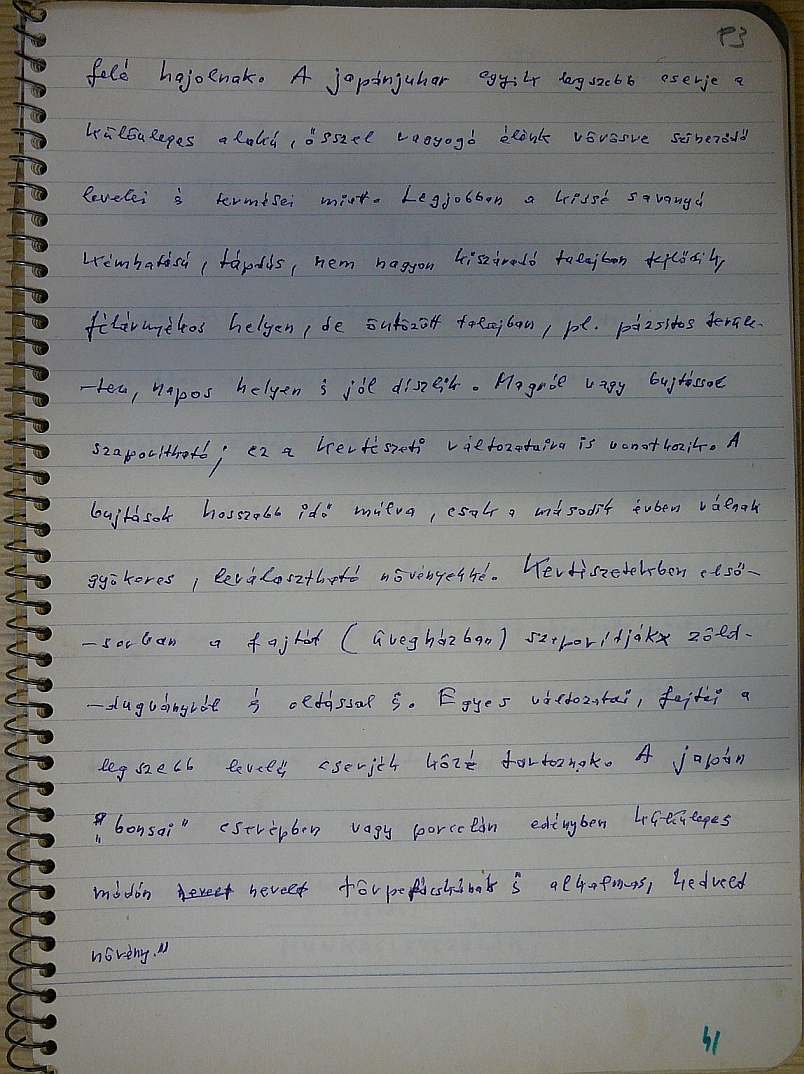 P3
felé hajolnak. A japánjuhar egyik legszebb cserje a
különleges alakú, ősszel ragyogó élénk vörösre színeződő
levelei s termései miatt. Legjobban a kissé savanyú
kémhatású, tápdús, nem nagyon kiszáradó talajban fejlődik,
félárnyékos helyen, de öntözött talajban, pl. pázsitos terüle-
-ten, napos helyen is jól díszlik. Magról vagy bujtással
szaporítható; ez a kertészeti változataira is vonatkozik. A
bujtások hosszabb idő múlva, csak a második évben válnak
gyökeres, leválasztható növényekké. Kertészetekben első-
-sorban a fajtát (üvegházban) szaporítják zöld-
-dugványról és oltással is. Egyes változatai, fajtái a
legszebb levelű cserjék közé tartoznak. A japán
"bonsai" cserépben vagy porcelán edényben különleges
módon nevelt törpefácskának is alkalmas, kedvelt
növény."
41